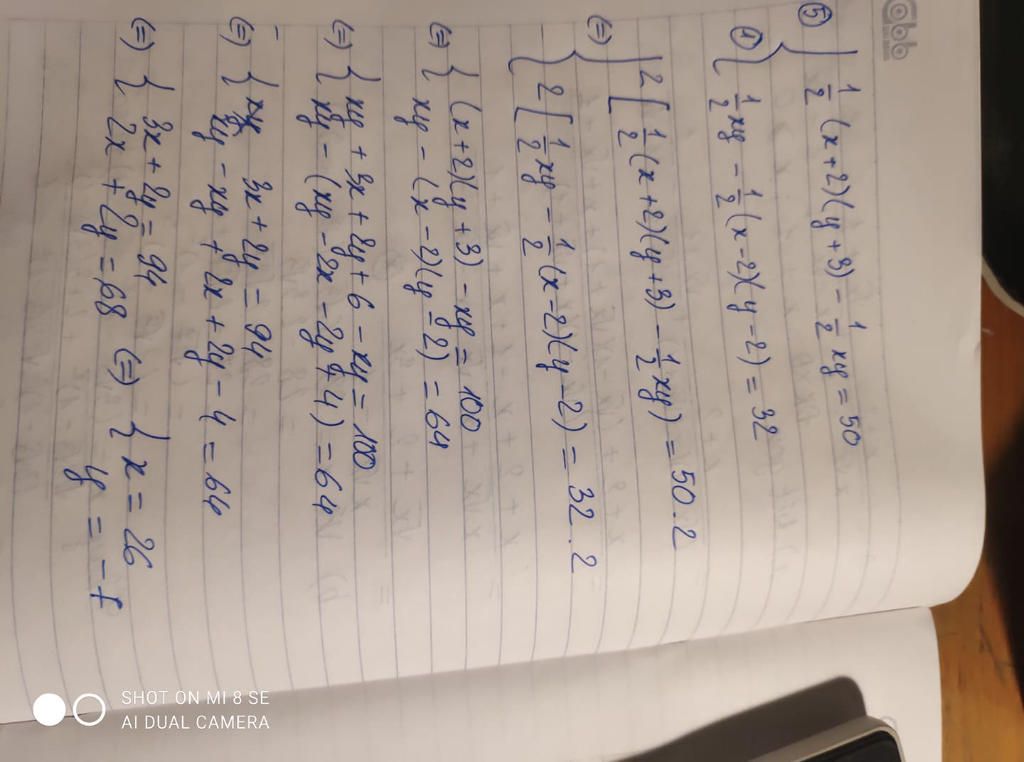 Cabb
⑤ { 1/2 (x+2)(y+3) - 1/2 xy = 50
① { 1/2 xy - 1/2 (x-2)(y-2) = 32
(=) { 2 [ 1/2 (x+2)(y+3) - 1/2 xy) = 50.2
{ 2 [ 1/2 xy - 1/2 (x-2)(y-2) = 32.2
(=) { (x+2)(y+3) - xy = 100
xy - (x-2)(y-2) = 64
(=) { xy + 3x + 2y + 6 - xy = 100
xy - (xy - 2x - 2y + 4) = 64
(=) { 3x + 2y = 94
xy - xy + 2x + 2y - 4 = 64
(=) { 3x + 2y = 94
2x + 2y = 68 (=) { x = 26
y =
SHOT ON MI 8 SE
AI DUAL CAMERA